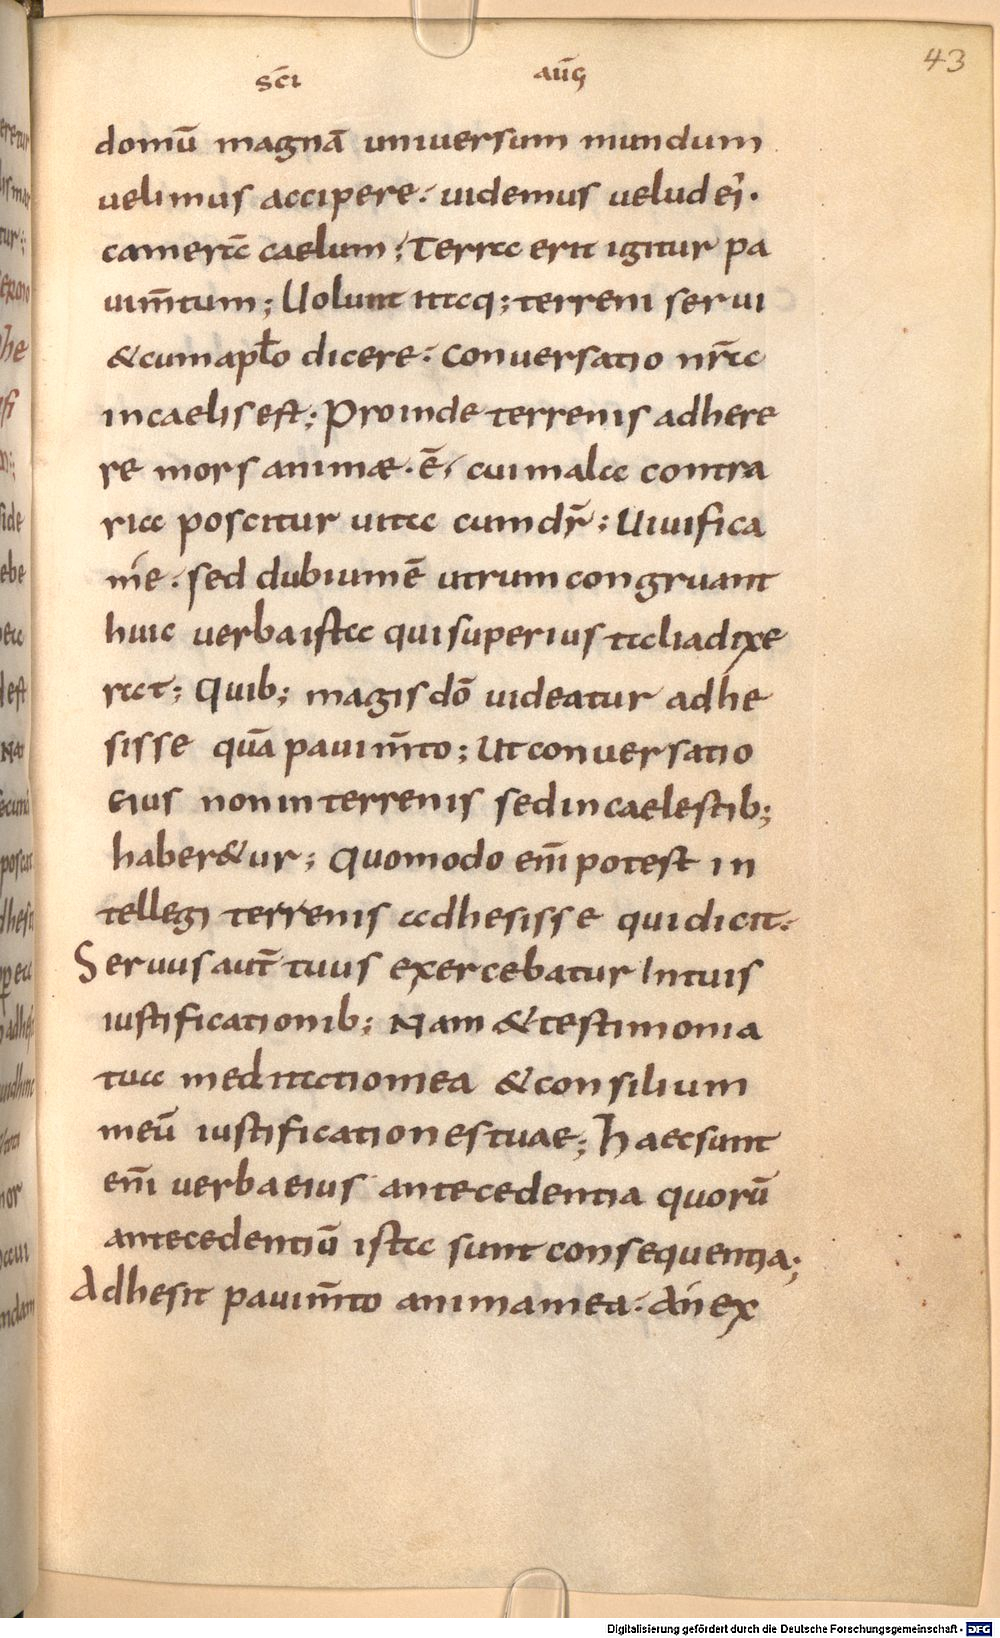 43
sc̄i aūg
domū magnā uniuersum mundum
uelimus accipere· uidemus uelud ei·
camerā caelum; Terra erit igitur pa
uim̄tum; Uolunt itaq; terreni serui
& cum apl̄o dicere· Conuersatio nr̄a
in caelis est; Proinde terrenis adhere
re mors animæ · ē · cui malae contra
ria poscitur uita cum dr̄; Uiuifica
me · sed dubium ē utrum congruant
huic uerba ista qui superius talia dixe
rat; Quib; magis dō uideatur adhe
sisse quā pauim̄to; Ut conuersatio
eius non in terrenis sed in caelestib;
haber&ur; Quomodo em̄ potest in
tellegi terrenis adhesisse qui dicit·
Seruus aut̄ tuus exercebatur In tuis
iustificationib; Nam & testimonia
tua meditatio mea & consilium
meū iustificationes tuae; Haec sunt
em̄ uerba eius antecedentia quorū
antecedentiū ista sunt consequentia;
Adhesit pauim̄to anima mea· An ex
Digitalisierung gefördert durch die Deutsche Forschungsgemeinschaft - DFG